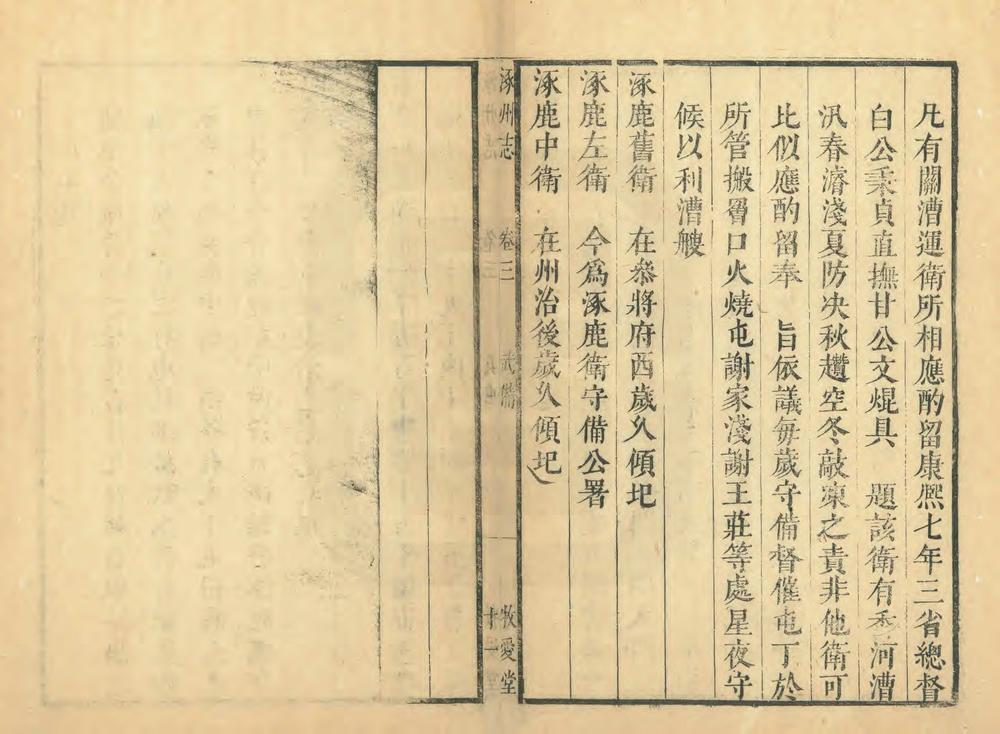 凡有關漕運衛所相應酌留康熈七年三省總督
白公秉貞直撫甘公文焜具　題該衛有香河漕
汛春濬淺夏防决秋趲空冬敲凍之責非他衛可
比似應酌留奉　旨依議每歲守備督催屯丁於
所管搬罾口火燒屯謝家淺謝王莊等處星夜守
候以利漕艘
涿鹿舊衛　在叅將府西歲乆傾圮
涿鹿左衛　今爲涿鹿衛守備公署
涿鹿中衛　在州治後歲乆傾圮
涿州志　卷三　武備　十一　牧愛堂